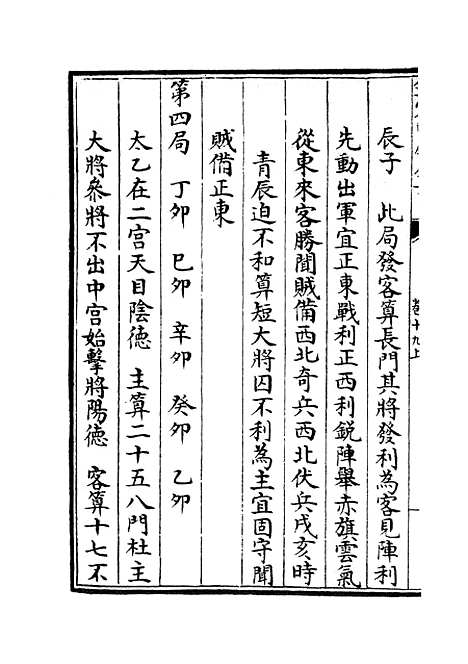 辰子　此局發客算長門其將發利為客見陣利
先動出軍宜正東戰利正西利鋭陣舉赤旗雲氣
從東來客勝聞賊備西北奇兵西北伏兵戌亥時
青辰迫不和算短大將囚不利為主宜固守聞
賊備正東
第四局　丁卯　巳卯　辛卯　癸卯　乙卯
太乙在二宫天目陰德　主算二十五八門杜主
大將參將不出中宫始擊將陽德　客算十七不
卷十九上